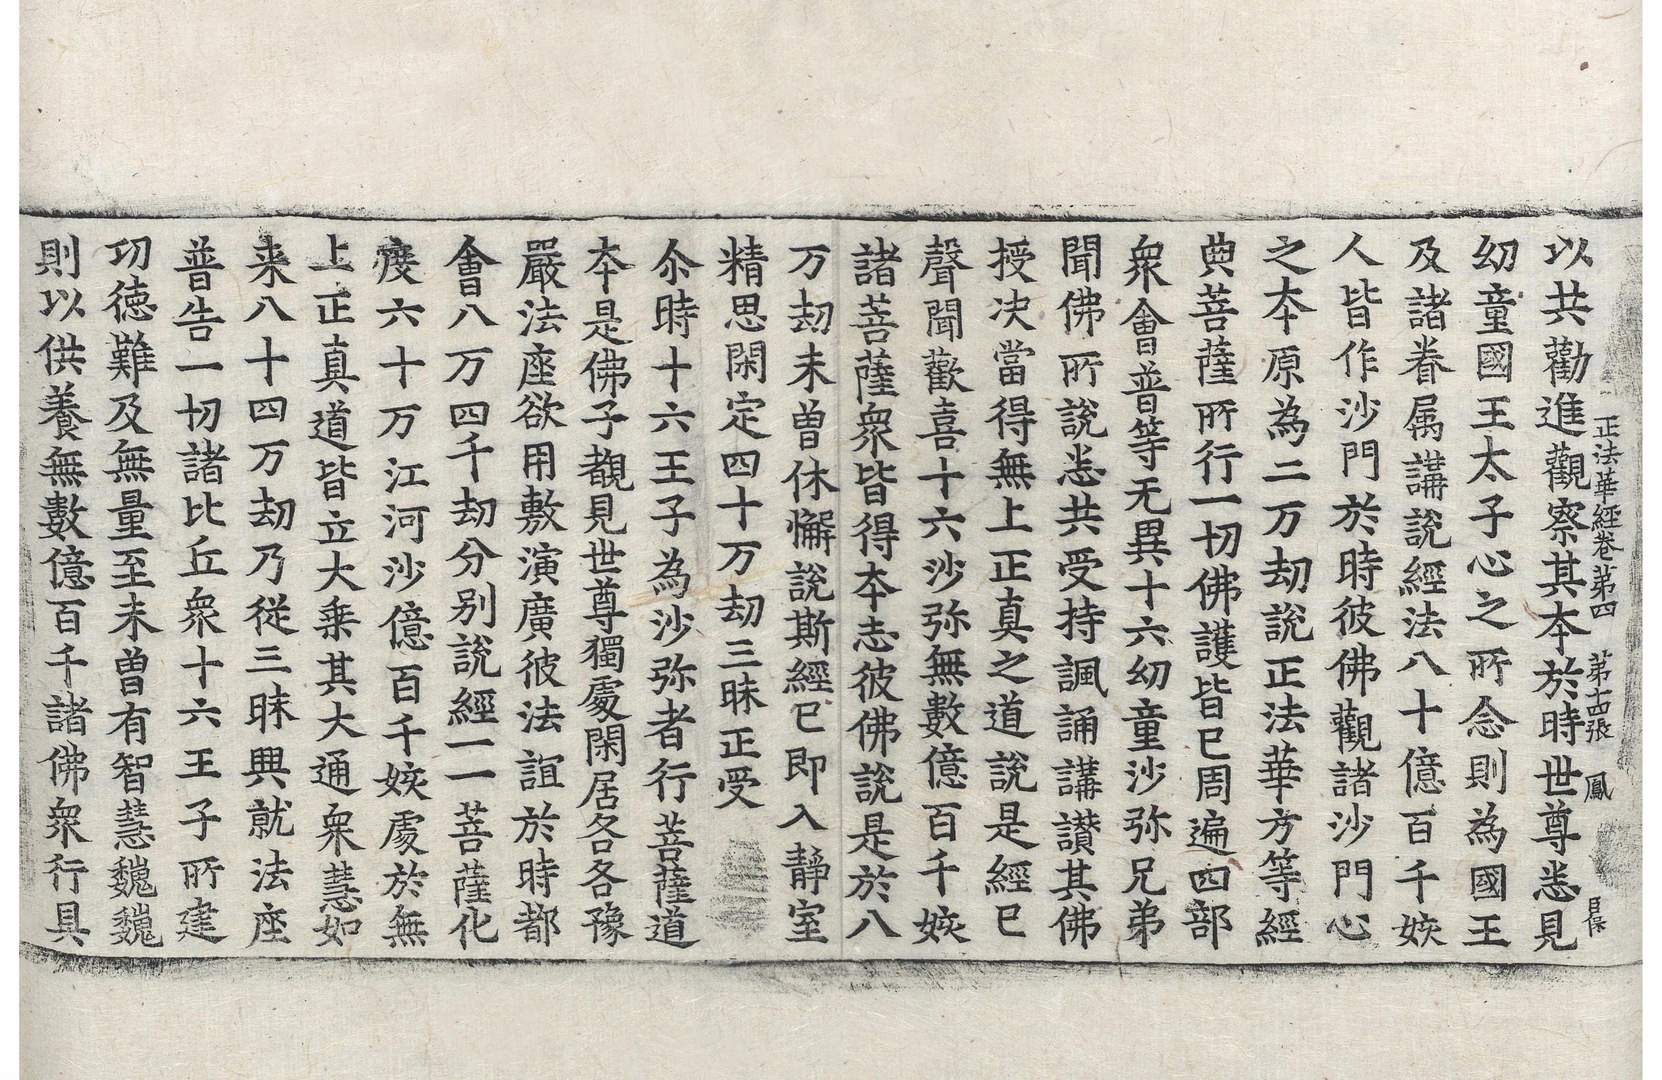 正法華經卷第四 第十四張 鳳
以共勸進觀察其本於時世尊悉見
幼童國王太子心之所念則為國王
及諸眷属講說經法八十億百千姟
人皆作沙門於時彼佛觀諸沙門心
之本原為二万劫說正法華方等經
典菩薩所行一切佛護皆已周遍四部
衆會普等无異十六幼童沙弥兄弟
聞佛所說悉共受持諷誦講讃其佛
授決當得無上正真之道說是經已
聲聞歡喜十六沙弥無數億百千姟
諸菩薩衆皆得本志彼佛說是於八
万劫未曾休懈說斯經已即入靜室
精思閑定四十万劫三昧正受
尒時十六王子為沙弥者行菩薩道
本是佛子覩見世尊獨處閑居各各豫
嚴法座欲用敷演廣彼法誼於時都
會八万四千劫分別說經一一菩薩化
度六十万江河沙億百千姟處於無
上正真道皆立大乗其大通衆慧如
来八十四万劫乃從三昧興就法座
普告一切諸比丘衆十六王子所建
功徳難及無量至未曾有智慧巍巍
則以供養無數億百千諸佛衆行具